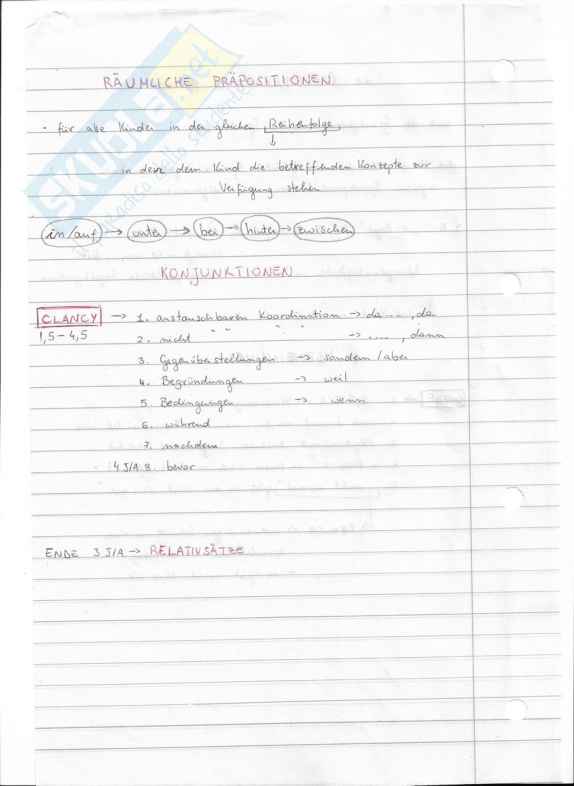 RÄUMLICHE PRÄPOSITIONEN
• für alle Kinder in der gleichen Reihenfolge
↓
in der dem Kind die betreffenden Konzepte zur
Verfügung stehen
in/auf → unter → bei → hinter → zwischen
KONJUNKTIONEN
CLANCY → 1. anstauschbaren Koordination → da ..., da
1,5 – 4,5
2. nicht " " " " → ....., dann
3. Gegenüberstellungen → sondern/aber
4. Begründungen → weil
5. Bedingungen → wenn
6. während
7. nachdem
4 J/A 8. bevor
ENDE 3 J/A → RELATIVSÄTZE
SKUOLA.net